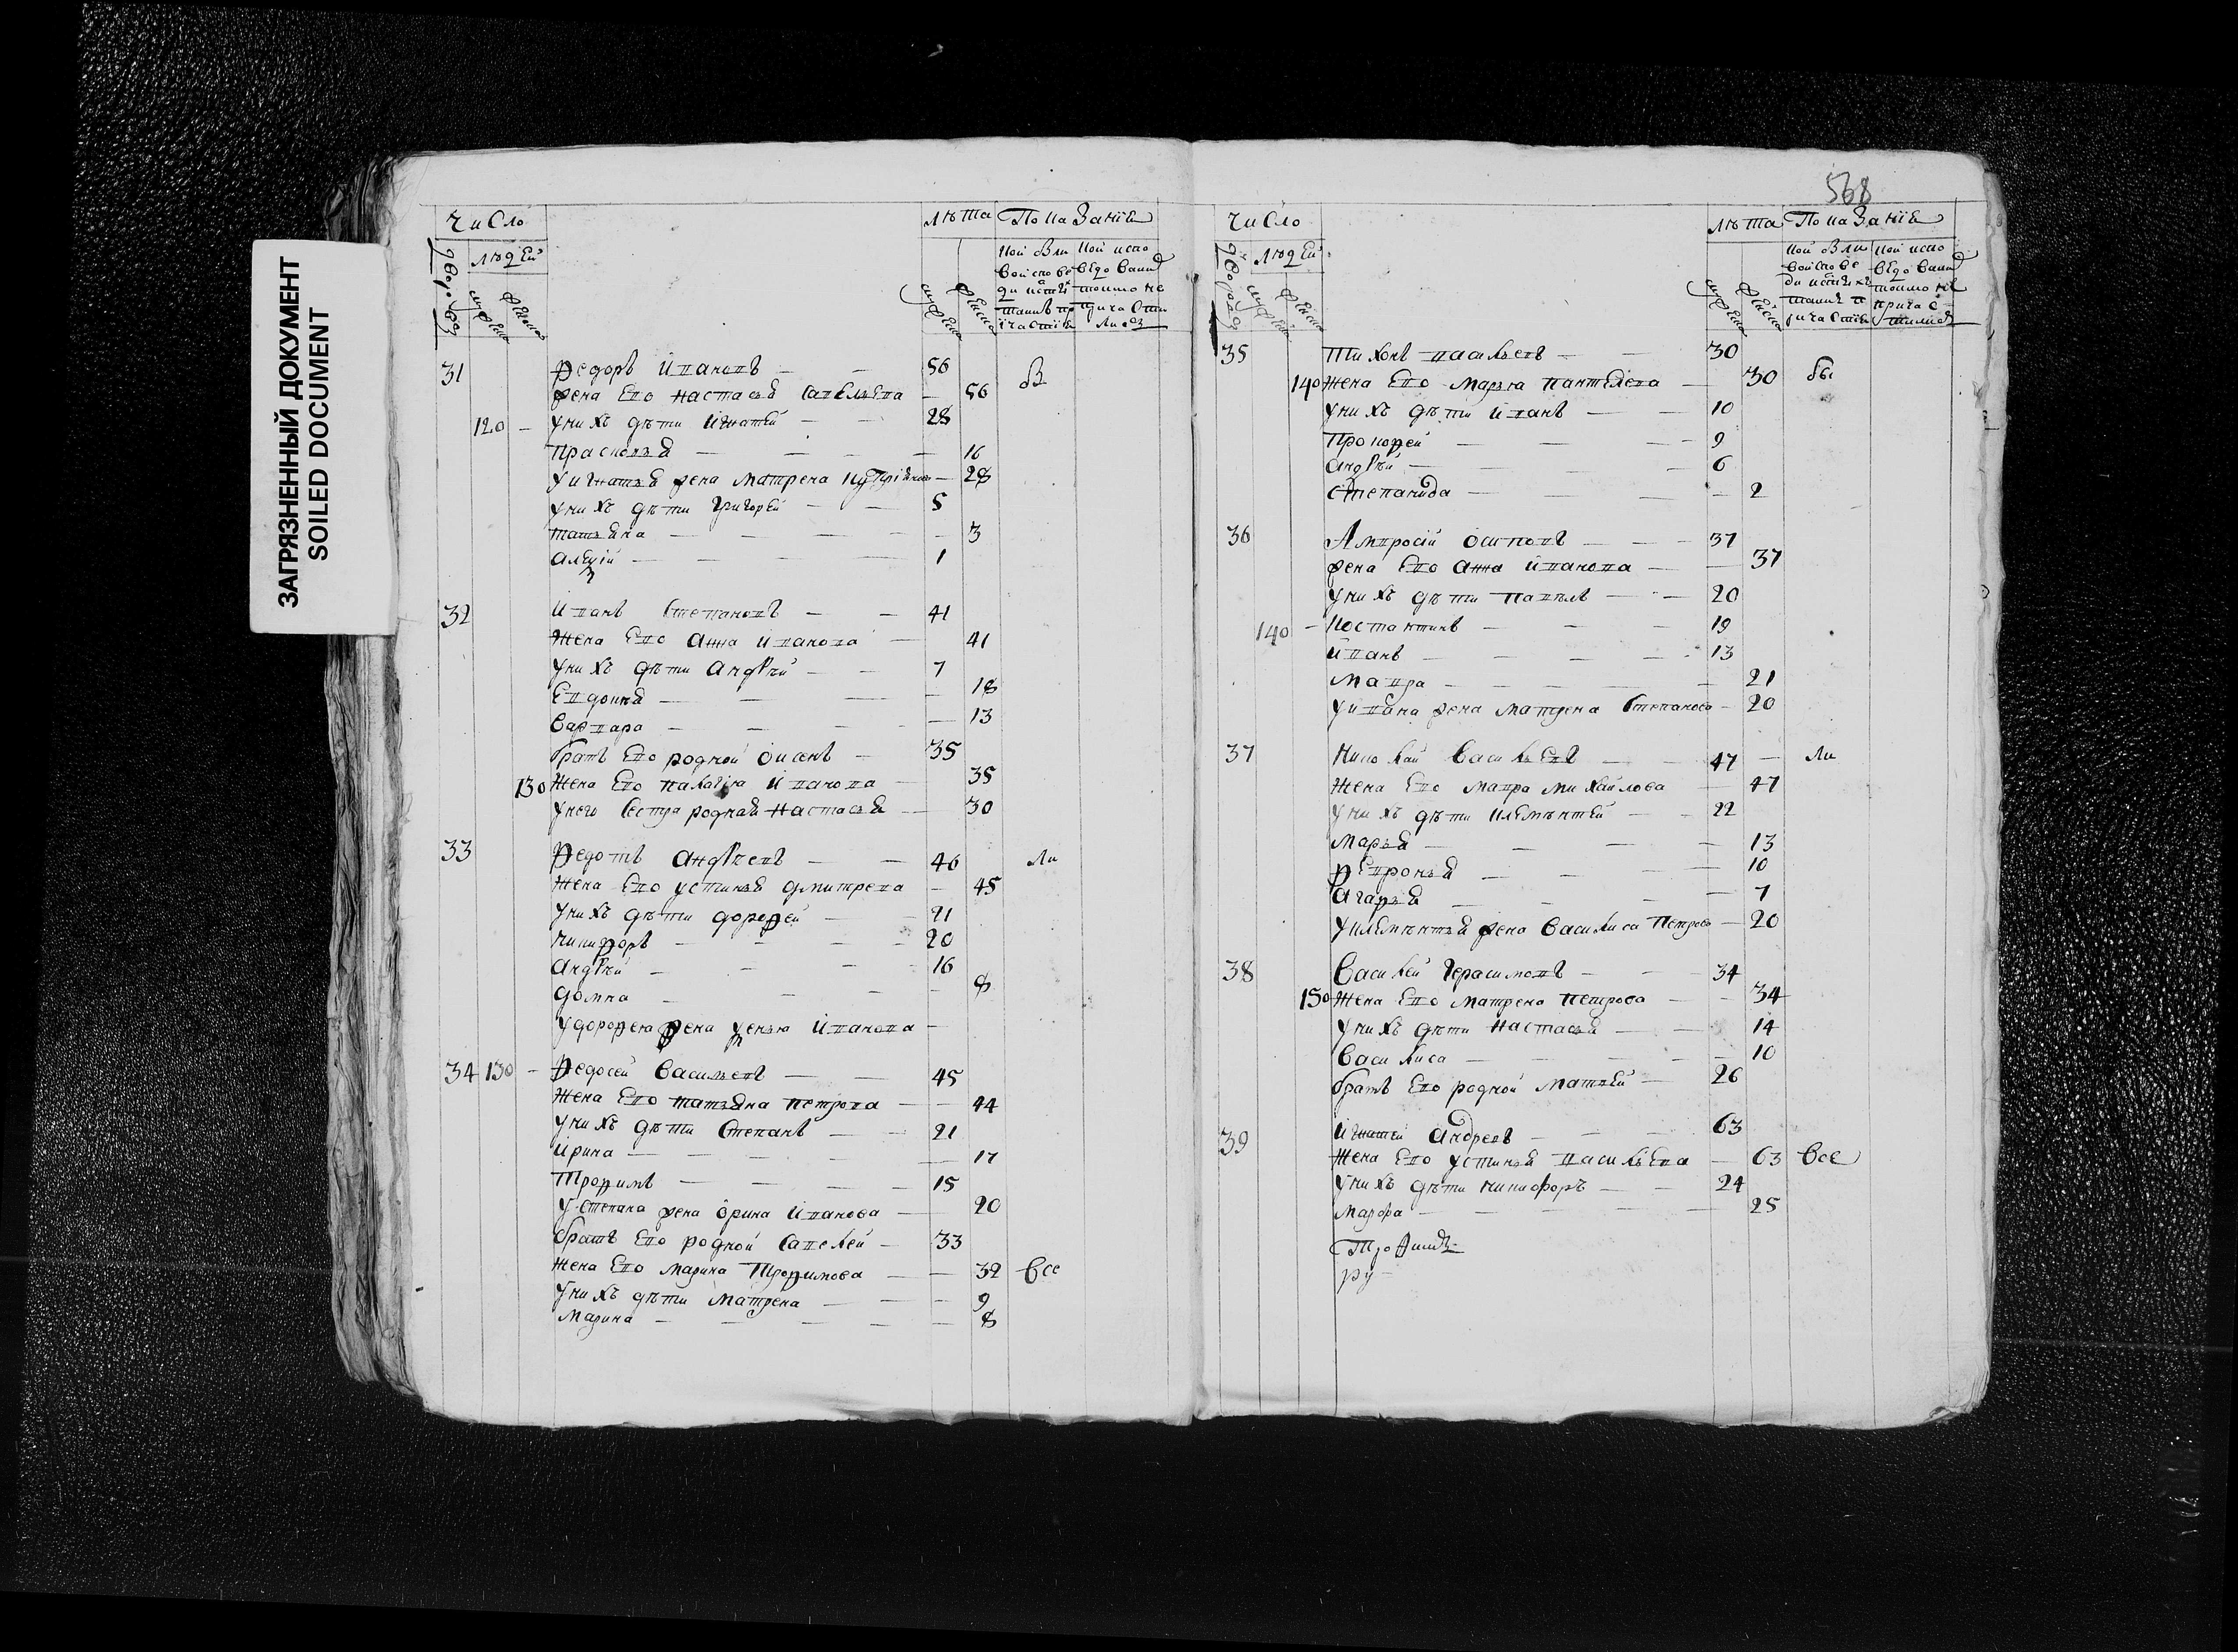 ЗАГРЯЗНЕННЫЙ ДОКУМЕНТ
SOILED DOCUMENT
Число
людей
дворовъ
мужеска
женска
лѣта
Показаніе
мужеска
женска
31 Федоръ Ивановъ — — 56
жена Ево настасья савельева — 56 в
120 — у нихъ дѣти игнатей — — 28
прасковья — — — — 16
у игнатья жена матрена — 28
у нихъ дѣти григорей — — 5
татьяна — — — — 3
алексій — — — 1
32 иванъ степановъ — — 41
жена Ево анна иванова — 41
у нихъ дѣти андрѣй — — 7
Евдокия — — — 18
варвара — — — — 13
братъ Ево родной — 35
130 жена Ево палагия иванова — 35
у него сестра родная настасья — 30
33 Федотъ андрѣевъ — — 46 ли
жена Ево устинья дмитрева — 45
у нихъ дѣти дорофей — — 21
никифоръ — — — 20
андрѣй — — — 16
домна — — — — 8
у дорофея жена иванова —
34 130 — Федосей васильевъ — — 45
жена Ево татьяна петрова — — 44
у нихъ дѣти степанъ — — 21
ирина — — — — 17
трофимъ — — — — 15
у степана жена орина иванова — 20
братъ Ево родной савелей — 33
жена Ево марина трофимова — — 32 все
у нихъ дѣти матрена — — — 9
марина — — — — 8
568
Число
людей
дворовъ
мужеска
женска
лѣта
Показаніе
мужеска
женска
35 тихонъ васильевъ — — 30
140 жена Ево марья пантелева — 30 бы
у нихъ дѣти иванъ — — 10
прокофей — — — 9
андрѣй — — — 6
степанида — — — — 2
36 Амвросій осиповъ — — 37
жена Ево анна иванова — — 37
у нихъ дѣти павелъ — — 20
140 — костантинъ — — — 19
иванъ — — — — 13
мавра — — — — 21
у ивана жена матрена степанова — 20
37 николай васильевъ — — 47 — ли
жена Ево мавра михайлова — 47
у нихъ дѣти климентей — — 22
марья — — — — 13
Февронья — — — — 10
агафья — — — — 7
у климентья жена василиса петрова — 20
38 василей герасимовъ — — 34
150 жена Ево матрена петрова — — 34
у нихъ дѣти настасья — — 14
василиса — — — — 10
братъ Ево родной матвей — 26
39 игнатей андреевъ — — — 63
жена Ево устинья васильева — 63 все
у нихъ дѣти никифоръ — — 24
марфа — — — — 25
Трофимъ
ру